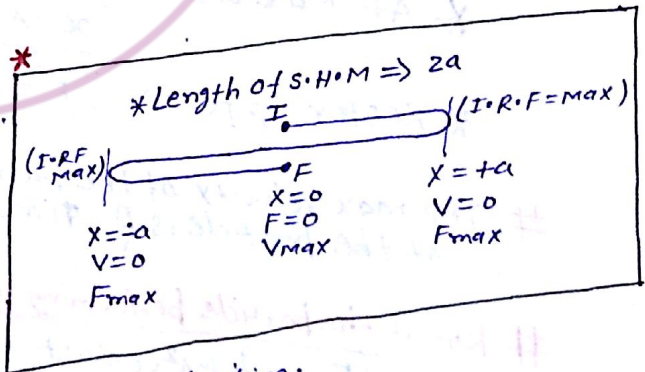 *
* Length of S.H.M => 2a
I
(I.R.F = Max)
(I.RF Max)
F
X = -a
V = 0
Fmax
X = 0
F = 0
VMax
X = +a
V = 0
Fmax